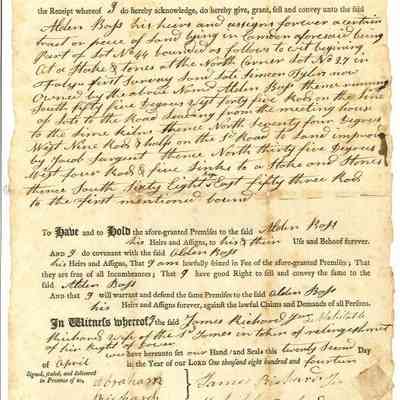 the Receipt whereof I do hereby acknowledge, do hereby give, grant, sell and convey unto the said
Alden Boss his heirs and assigns forever a certain
tract or piece of land lying in Camden aforesaid being
Part of Lot No 44 bounded as follows to wit begining
At a Stake & stones at the North Corner Lot No 27 in
first survey land late Simeon Tyler now
Owned by the above Name Alden Boss thence running
South fifty five Degrees West forty five Rods on the line
of Lots to the Road leading from the meeting house
to the lime kilns thence North Seventy four Degrees
West Nine Rods & half on the Sd Road to land improv
by Jacob Sargent thence North thirty five Degrees
West four Rods & five links to a Stake and Stones
thence South Sixty Eight East fifty three Rods
to the first mentioned bound
To Have and to Hold the afore-granted Premises to the said Alden Boss
his Heirs and Assigns, to his & their Use and Behoof forever.
And I do covenant with the said Alden Boss
his Heirs and Assigns, That I am lawfully seized in Fee of the afore-granted Premises; That
they are free of all Incumbrances; That I have good Right to sell and convey the same to the
said Alden Boss
And that I will warrant and defend the same Premises to the said Alden Boss
his Heirs and Assigns forever, against the lawful Claims and Demands of all Persons.
In Witness whereof, I the said James Richard Jr &
Richard wife of the Sd James in token of relinquishment
of his Right of Dower
have hereunto set our Hand and Seals this twenty second Day
of April in the Year of our LORD One thousand eight hundred and fourteen
Signed, sealed, and delivered
in Presence of us,
Abraham
Richards
James Richard Jr